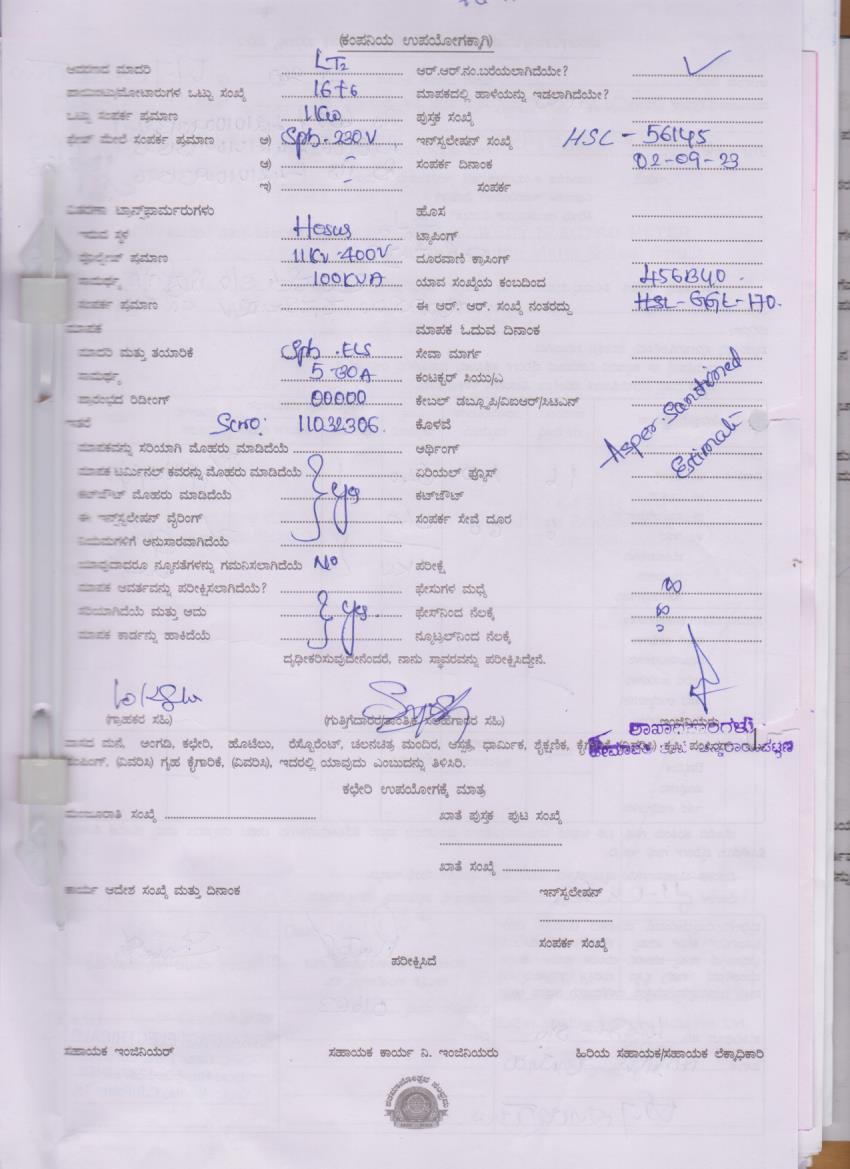 (ಕಂಪನಿಯ ಉಪಯೋಗಕ್ಕಾಗಿ)
ಆವರಣದ ಮಾದರಿ LT2 ಆರ್.ಆರ್.ನಂ.ಬರೆಯಲಾಗಿದೆಯೇ? ✓
ಪಾಯಿಂಟು/ಮೋಟಾರುಗಳ ಒಟ್ಟು ಸಂಖ್ಯೆ 16+6 ಮಾಪಕದಲ್ಲಿ ಹಾಳೆಯನ್ನು ಇಡಲಾಗಿದೆಯೇ?
ಒಟ್ಟು ಸಂಪರ್ಕ ಪ್ರಮಾಣ 1KW ಪುಸ್ತಕ ಸಂಖ್ಯೆ
ಫೇಸ್ ಮೇಲೆ ಸಂಪರ್ಕ ಪ್ರಮಾಣ ಅ) Sph. 230V ಇನ್‌ಸ್ಟಲೇಷನ್ ಸಂಖ್ಯೆ HSL - 56145
ಆ) ಸಂಪರ್ಕ ದಿನಾಂಕ 02-09-23
ಇ) ಸಂಪರ್ಕ
ವಿತರಣಾ ಟ್ರಾನ್ಸ್‌ಫಾರ್ಮರುಗಳು ಹೊಸ
ಇರುವ ಸ್ಥಳ Hosur ಟ್ಯಾಪಿಂಗ್
ವೋಲ್ಟೇಜ್ ಪ್ರಮಾಣ 11KV-400V ದೂರವಾಣಿ ಕ್ರಾಸಿಂಗ್
ಸಾಮರ್ಥ್ಯ 100KVA ಯಾವ ಸಂಖ್ಯೆಯ ಕಂಬದಿಂದ 456B40
ಸಂಪರ್ಕ ಪ್ರಮಾಣ ಈ ಆರ್. ಆರ್. ಸಂಖ್ಯೆ ನಂತರದ್ದು HSL-GGL-170.
ಮಾಪಕ ಮಾಪಕ ಓದುವ ದಿನಾಂಕ
ಮಾದರಿ ಮತ್ತು ತಯಾರಿಕೆ Sph .ELS ಸೇವಾ ಮಾರ್ಗ
ಸಾಮರ್ಥ್ಯ 5-30A ಕಂಟಕ್ಟರ್ ಸಿಯು/ಎ
ಪ್ರಾರಂಭದ ರಿಡೀಂಗ್ 00000 ಕೇಬಲ್ ಡಬ್ಲ್ಯೂಪಿ/ವಿಐಆರ್/ಸಿಟಿಎನ್
ಇತರೆ Scno: 11032306. ಕೊಳವೆ
As per Sanctioned Estimate
ಮಾಪಕವನ್ನು ಸರಿಯಾಗಿ ಮೊಹರು ಮಾಡಿದೆಯೆ ಆರ್ಥಿಂಗ್
ಮಾಪಕ ಟರ್ಮಿನಲ್ ಕವರನ್ನು ಮೊಹರು ಮಾಡಿದೆಯೆ ಏರಿಯಲ್ ಫ್ಯೂಸ್
ಕಟ್‌ಔಟ್ ಮೊಹರು ಮಾಡಿದೆಯೆ yes ಕಟ್‌ಔಟ್
ಈ ಇನ್‌ಸ್ಟಲೇಷನ್ ವೈರಿಂಗ್ ಸಂಪರ್ಕ ಸೇವೆ ದೂರ
ನಿಯಮಗಳಿಗೆ ಅನುಸಾರವಾಗಿದೆಯೆ
ಯಾವುದಾದರೂ ನ್ಯೂನತೆಗಳನ್ನು ಗಮನಿಸಲಾಗಿದೆಯೆ No ಪರೀಕ್ಷೆ
ಮಾಪಕ ಆವರ್ತವನ್ನು ಪರೀಕ್ಷಿಸಲಾಗಿದೆಯೆ? ಫೇಸುಗಳ ಮಧ್ಯೆ ∞
ಸರಿಯಾಗಿದೆಯೆ ಮತ್ತು ಅದು yes ಫೇಸ್‌ನಿಂದ ನೆಲಕ್ಕೆ ∞
ಮಾಪಕ ಕಾರ್ಡನ್ನು ಹಾಕಿದೆಯೆ ನ್ಯೂಟ್ರಲ್‌ನಿಂದ ನೆಲಕ್ಕೆ
ದೃಢೀಕರಿಸುವುದೇನೆಂದರೆ, ನಾನು ಸ್ಥಾವರವನ್ನು ಪರೀಕ್ಷಿಸಿದ್ದೇನೆ.
(ಗ್ರಾಹಕರ ಸಹಿ) (ಗುತ್ತಿಗೆದಾರರ/ತಾಂತ್ರಿಕ ಸಲಹಗಾರರ ಸಹಿ) ಇಂಜಿನಿಯರು
ಶಾಖಾಧಿಕಾರಿಗಳು
ವಾಸದ ಮನೆ, ಅಂಗಡಿ, ಕಛೇರಿ, ಹೋಟೆಲು, ರೆಸ್ಟೋರೆಂಟ್, ಚಲನಚಿತ್ರ ಮಂದಿರ, ಆಸ್ಪತ್ರೆ, ಧಾರ್ಮಿಕ, ಶೈಕ್ಷಣಿಕ,
ಪಂಪಿಂಗ್. (ವಿವರಿಸಿ) ಗೃಹ ಕೈಗಾರಿಕೆ, (ವಿವರಿಸಿ), ಇದರಲ್ಲಿ ಯಾವುದು ಎಂಬುದನ್ನು ತಿಳಿಸಿರಿ.
ಕಛೇರಿ ಉಪಯೋಗಕ್ಕೆ ಮಾತ್ರ
ಮಂಜೂರಾತಿ ಸಂಖ್ಯೆ ಖಾತೆ ಪುಸ್ತಕ ಪುಟ ಸಂಖ್ಯೆ
ಖಾತೆ ಸಂಖ್ಯೆ
ಕಾರ್ಯ ಆದೇಶ ಸಂಖ್ಯೆ ಮತ್ತು ದಿನಾಂಕ ಇನ್‌ಸ್ಟಲೇಷನ್
ಸಂಪರ್ಕ ಸಂಖ್ಯೆ
ಪರೀಕ್ಷಿಸಿದೆ
ಸಹಾಯಕ ಇಂಜಿನಿಯರ್ ಸಹಾಯಕ ಕಾರ್ಯ ನಿ. ಇಂಜಿನಿಯರು ಹಿರಿಯ ಸಹಾಯಕ/ಸಹಾಯಕ ಲೆಕ್ಕಾಧಿಕಾರಿ